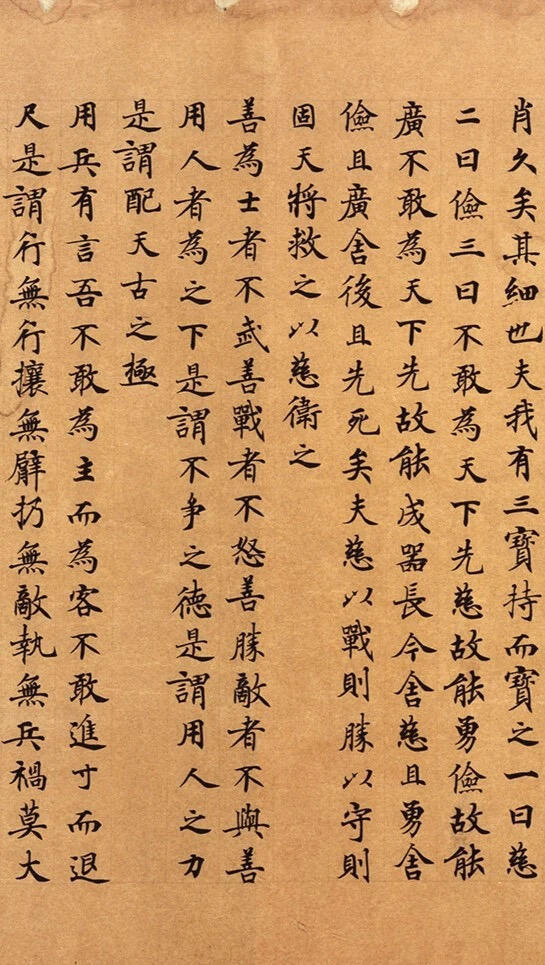 肖久矣其細也夫我有三寶持而寶之一曰慈
二曰儉三曰不敢為天下先慈故能勇儉故能
廣不敢為天下先故能成器長今舍慈且勇舍
儉且廣舍後且先死矣夫慈以戰則勝以守則
固天將救之以慈衛之
善為士者不武善戰者不怒善勝敵者不與善
用人者為之下是謂不爭之徳是謂用人之力
是謂配天古之極
用兵有言吾不敢為主而為客不敢進寸而退
尺是謂行無行攘無臂扔無敵執無兵禍莫大